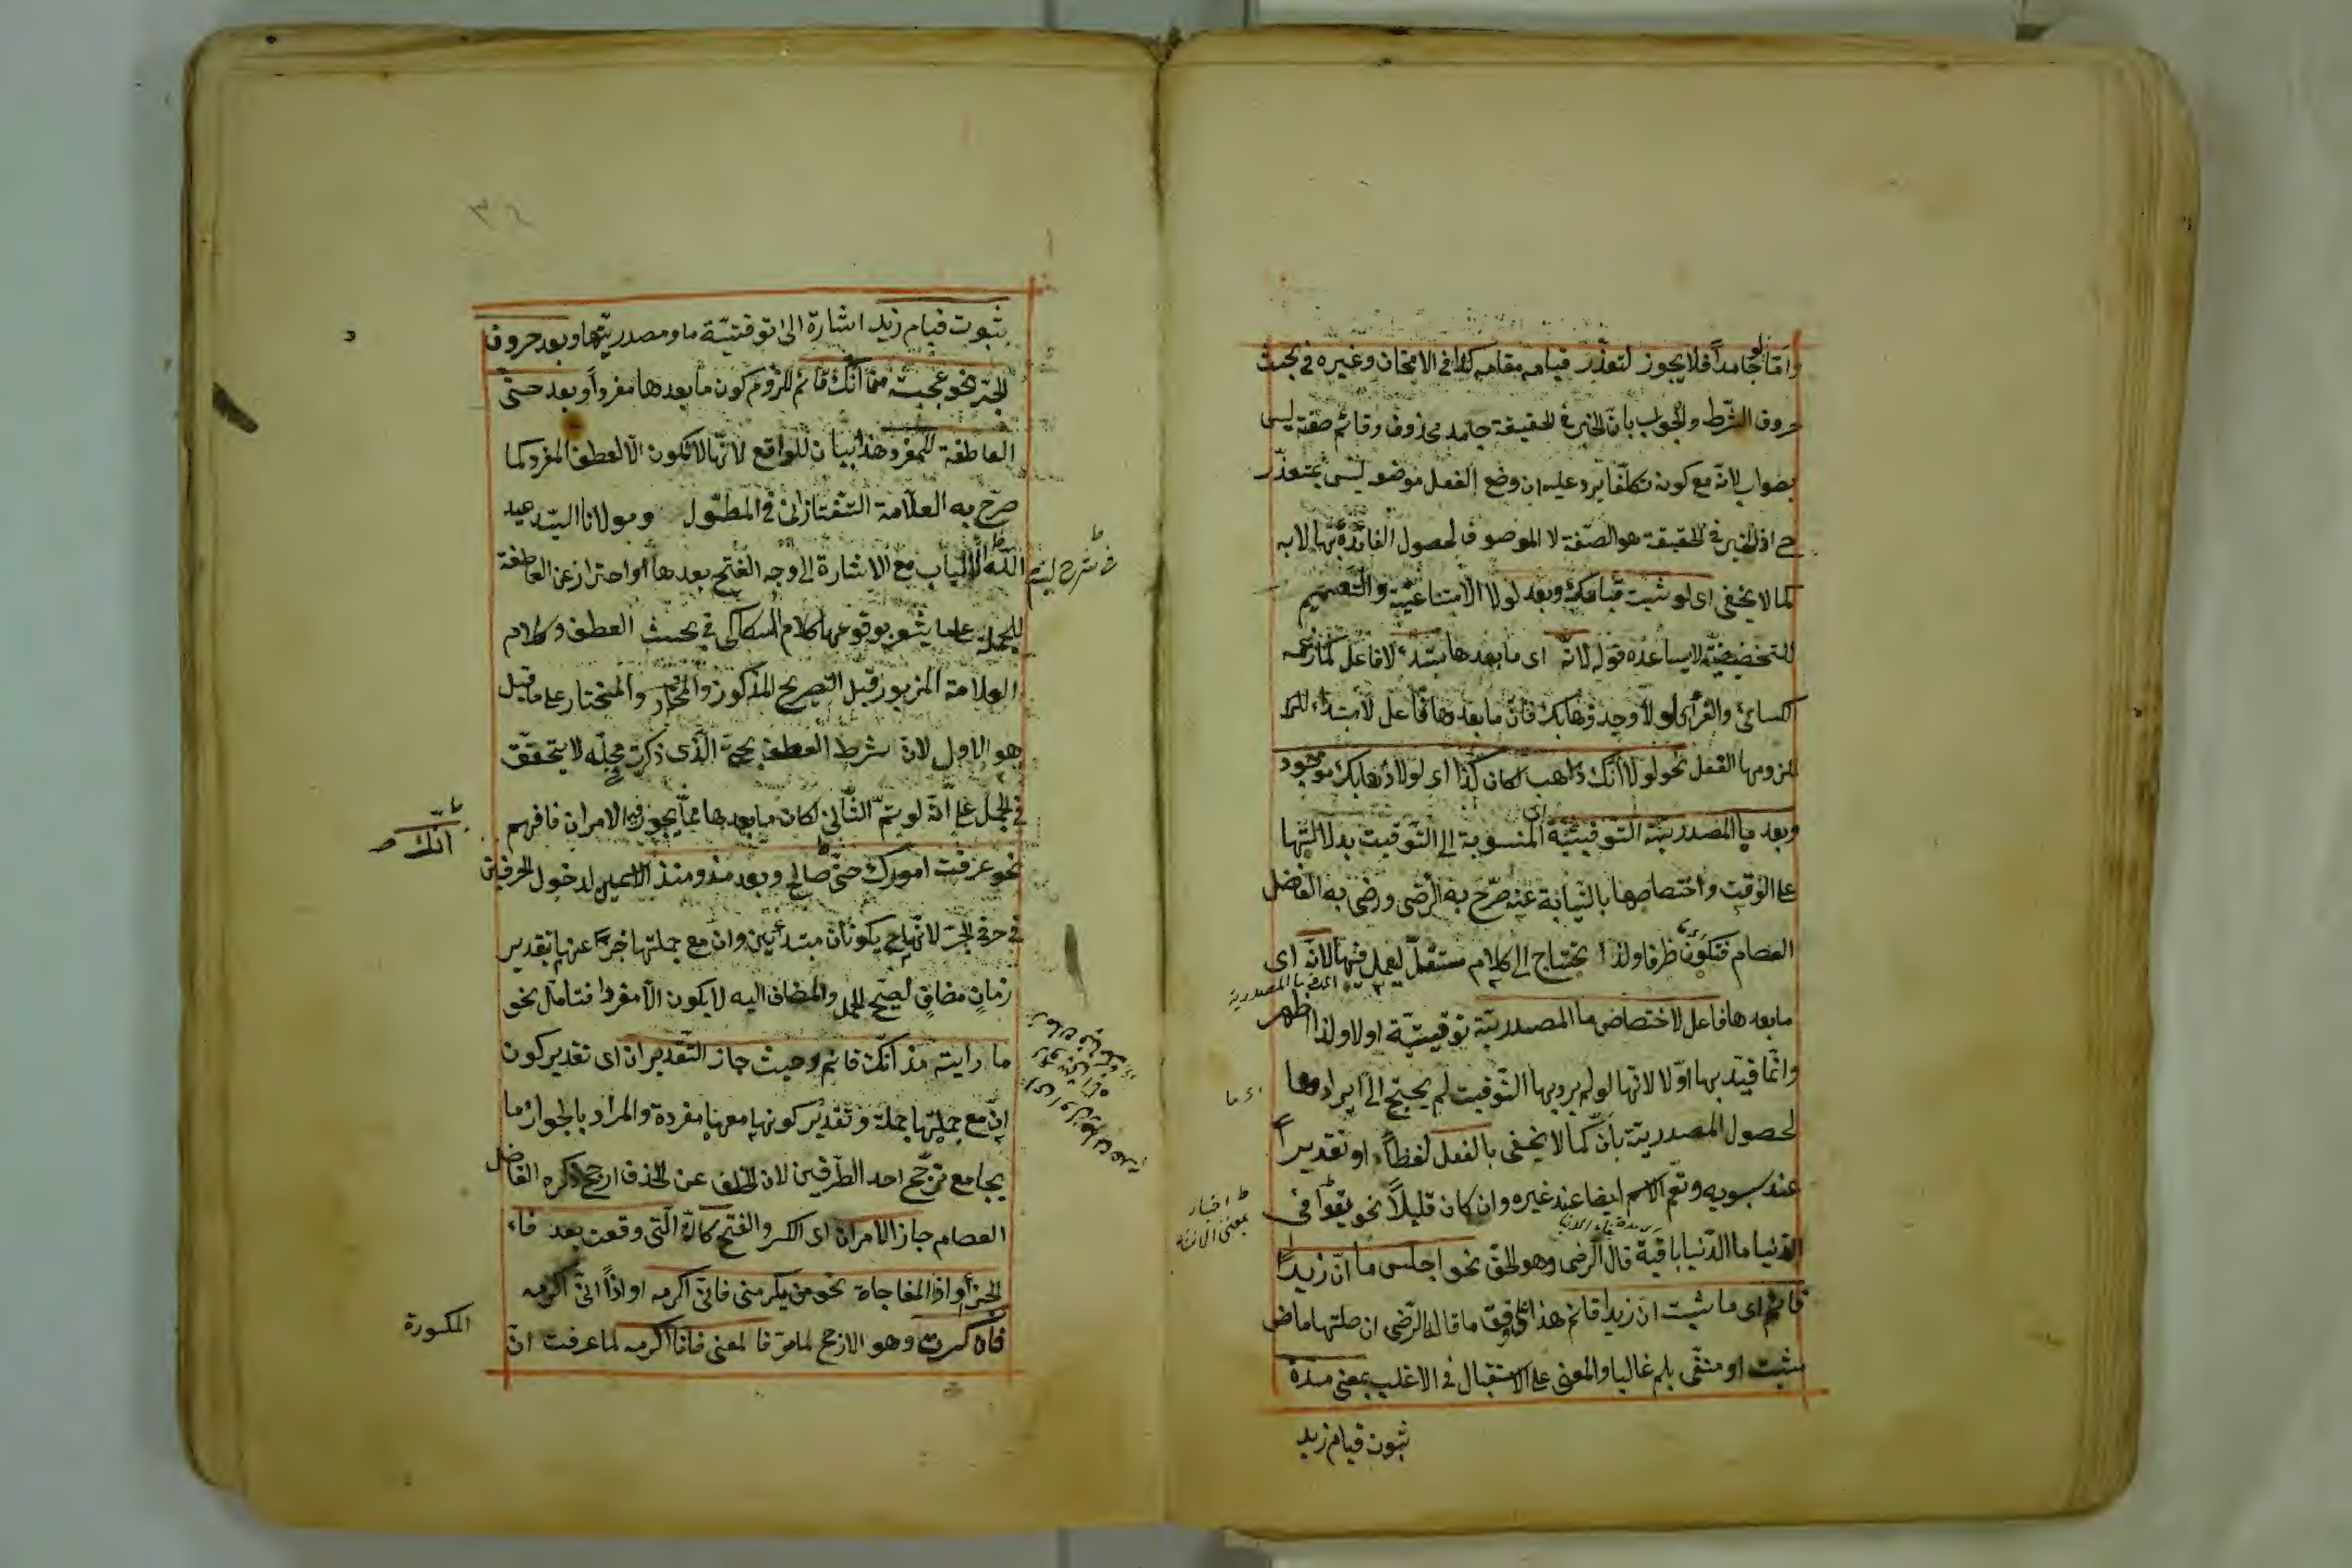 واما لو جامداً فلا يجوز لتعذّر قيامه مقامه كذا في الامتحان وغيره في بحث
حروف الشّرط والجواب بانّ الخبر في الحقيقة جامد محذوف وقائم صفته ليس
بصواب لانّه مع كونه تكلّفا يرد عليه ان وضع الفعل موضعه ليس بمتعذّر
ح اذ الخبر في الحقيقة هو الصّفة لا الموصوف لحصول الفائدة بها لا به
كما لا يخفى اى لو ثبت قيامك وبعد لولا الامتناعيّة والتّعميم
للتحضيضيّة لا يساعده قوله لانّه اى ما بعدها مبتدء لا فاعل كما زعمه
الكسائى والفرّاء اى لولا وجد ذهابك فانّ ما بعدها فاعل لا مبتداء
لزومها الفعل نحو لولا انّك ذاهب لكان كذا اى لولا ذهابك موجود
وبعد ما المصدريّة التّوقيتيّة اى المنسوبة الى التّوقيت بدلالتها
على الوقت واختصاصها بالنّيابة عنه صرّح به الرّضى ورضى به الفاضل
العصام فتكون ظرفا ولذا يحتاج الى كلام مستقلّ ليعمل فيها لانّه اى
ما بعدها فاعل لاختصاص ما المصدريّة توقيتيّة اولا ولذا اظهر
وانّما قيد بها اوّلا لانّها لو لم يرد بها التّوقيت لم يحتج الى ايراد
لحصول المصدريّة بانّ كما لا يخفى بالفعل لفظاً او تقديراً
عند سيبويه وتعمّ الاسم ايضا عند غيره وان كان قليلاً نحو بقوا في
الدّنيا ما الدّنيا باقية قال الرضى وهو الحقّ نحو اجلس ما انّ زيداً
قائم اى ما ثبت انّ زيدا قائم هذا على وفق ما قاله الرّضى ان صلتها ماض
مثبت او منفى بلم غالبا والمعنى على الاستقبال في الاغلب بمعنى مدّة
ثبوت قيام زيد
ثبوت قيام زيد اشارة الى توقيتيّة ما ومصدريّتها وبعد حروف
الجرّ نحو عجبت من انّك قائم للزوم كون ما بعدها مفرداً وبعد حتّى
العاطفة للمفرد هذا بيان للواقع لانّها لا تكون الّا لعطف المفرد كما
صرّح به العلّامة التّفتازانى في المطوّل ومولانا السّيد عبد
الله اللباب مع الاشارة الى وجه الفتح بعدها او احتراز عن العاطفة
للجملة على ما يشعر بوقوعها كلام السّكاكى في بحث العطف وكلام
العلامة المزبور قبل التصريح المذكور والمختار على ما قيل
هو الاول لانّ شرط العطف بحتّى الّذى ذكرت محلّه لا يتحقّق
في الجمل على انّه لو تمّ الثّانى لكان ما بعدها ممّا يجوز فيه الامران فافهم
نحو عرفت امورك حتّى صالح وبعد مذ ومنذ الاسمين لدخول الحرفين
في حرف الجرّ لانّها ح يكونان مبتدئين وان مع جملتها خبرا عنها بتقدير
زمان مضاف ليصحّ الحمل والمضاف اليه لا يكون الّا مفردا فتامّل نحو
ما رايته مذ انّك قائم وحيث جاز التّقديران اى تقدير كون
انّ مع جملتها جملة وتقدير كونها معها مفردة والمراد بالجواز ما
يجامع ترجّح احد الطّرفين لانّ الخلف عن الحذف ارجح ذكره الفاضل
العصام جاز الامران اى الكسر والفتح كانّ الّتى وقعت بعد فاء
الجزاء او اذا المفاجاة نحو من يكرمنى فانّى اكرمه او اذاً انّى اكرمه
فان كسرت وهو الارجح لما مرّ فالمعنى فانا اكرمه لما عرفت انّ
انّك صح
المكسورة